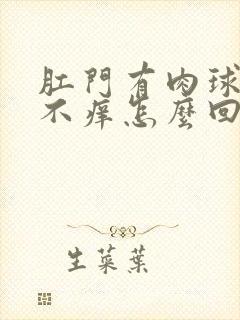 肛門有肉球
不痒怎麼回
生菜葉